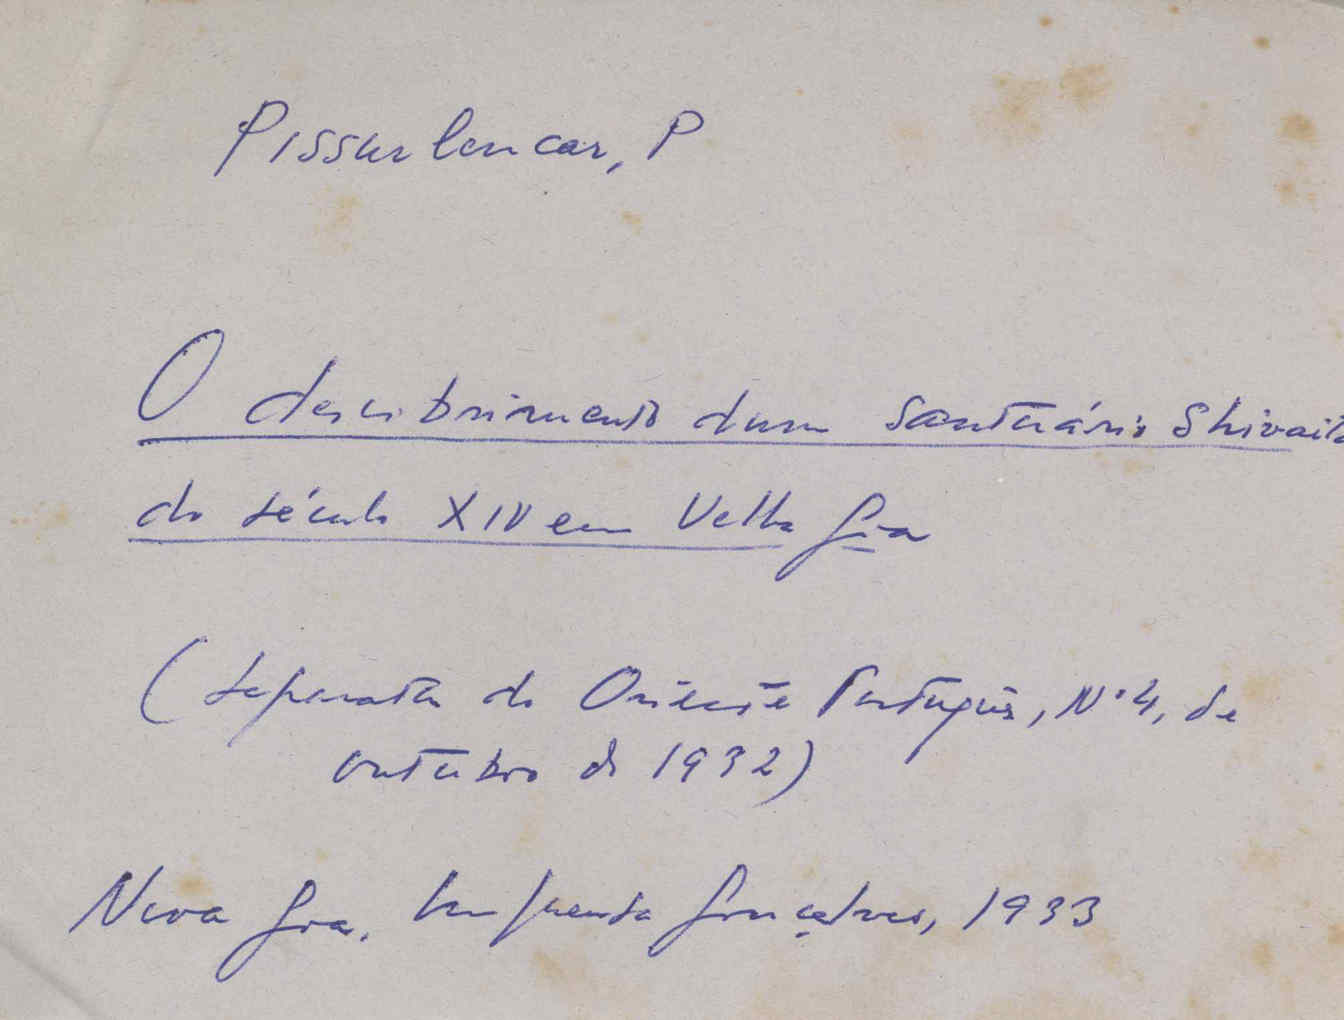 Pissurlencar, P
O descobrimento dum santuário Shivaita
do século XIV em Velha Goa
(Separata do Oriente Português, Nº 4, de
outubro de 1932)
Nova Goa, Imprensa Gonçalves, 1933